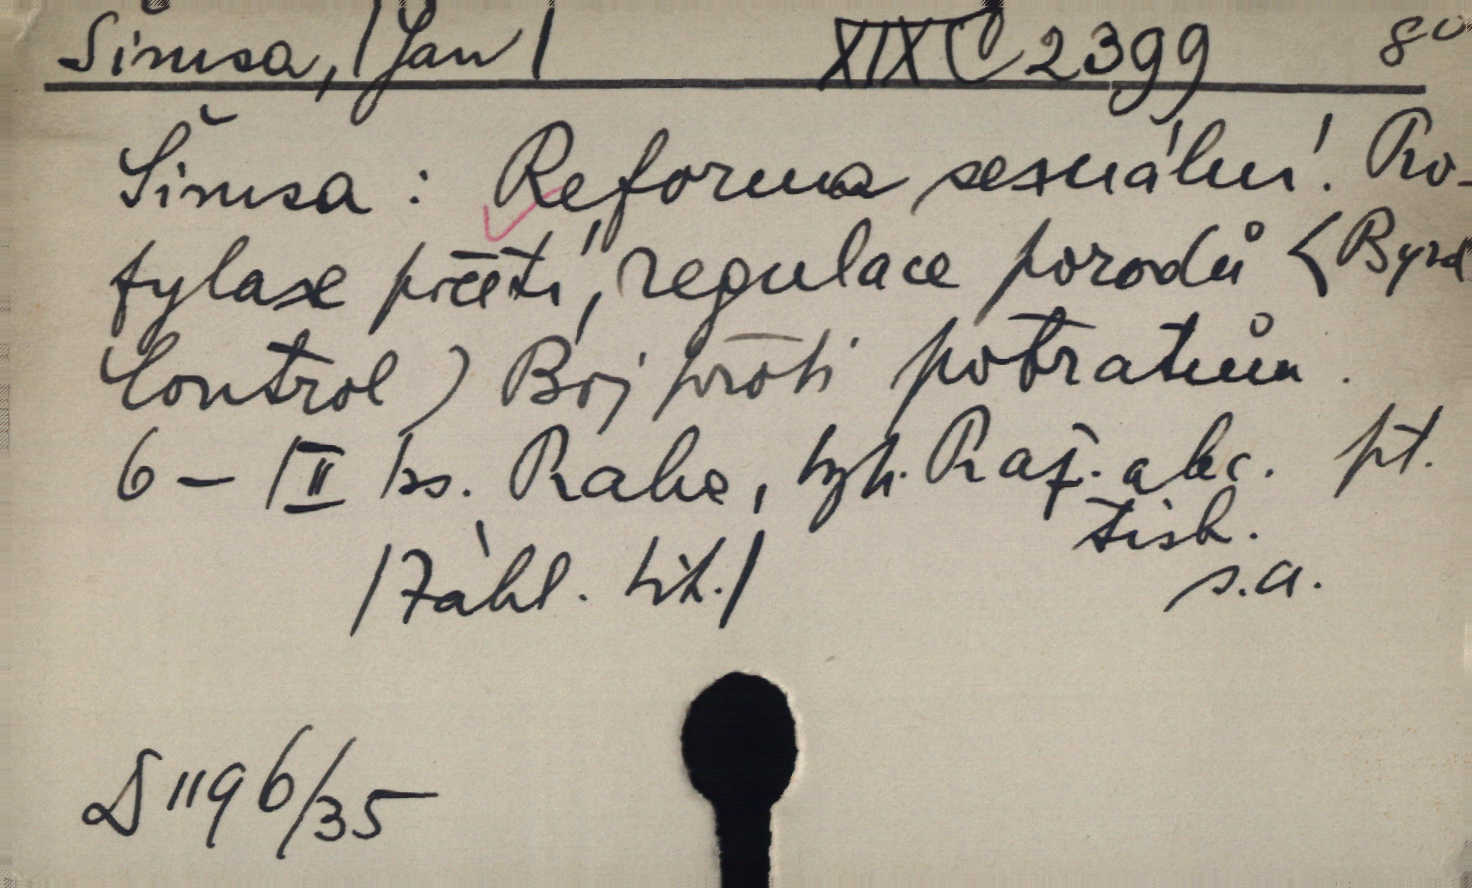 Šimsa, /Jan/ XIX C 2399 8°
Šimsa: Reforma sexuální. Pro-
fylaxe početí, regulace porodů (Byrd
Control) Boj proti potratům.
6 – III ks. Praha, Raž. a kc. pt.
tisk.
/Záhl. tit./ s.a.
D 1196/35